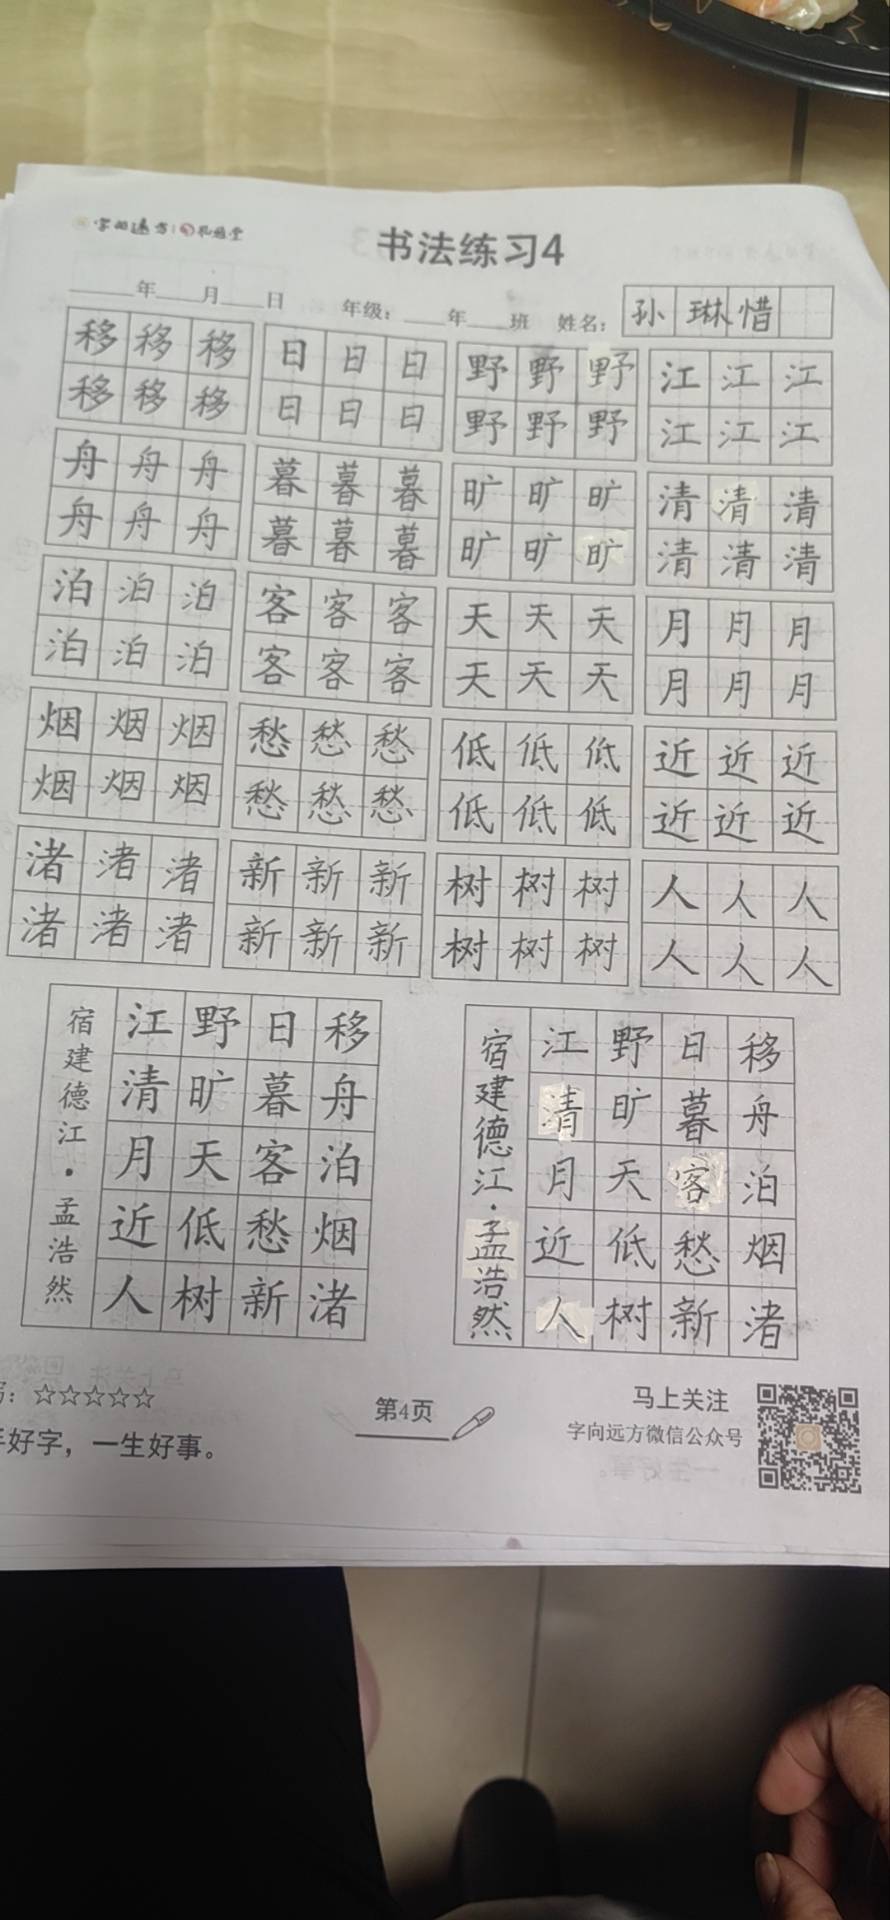 字向远方
书法练习4
____年____月____日 年级：____年____班 姓名：孙琳惜
移移移 日日日 野野野 江江江
移移移 日日日 野野野 江江江
舟舟舟 暮暮暮 旷旷旷 清清清
舟舟舟 暮暮暮 旷旷旷 清清清
泊泊泊 客客客 天天天 月月月
泊泊泊 客客客 天天天 月月月
烟烟烟 愁愁愁 低低低 近近近
烟烟烟 愁愁愁 低低低 近近近
渚渚渚 新新新 树树树 人人人
渚渚渚 新新新 树树树 人人人
移舟泊烟渚
日暮客愁新
野旷天低树
江清月近人
宿建德江·孟浩然
移舟泊烟渚
日暮客愁新
野旷天低树
江清月近人
宿建德江·孟浩然
：☆☆☆☆☆
第4页
马上关注
字向远方微信公众号
好字，一生好事。